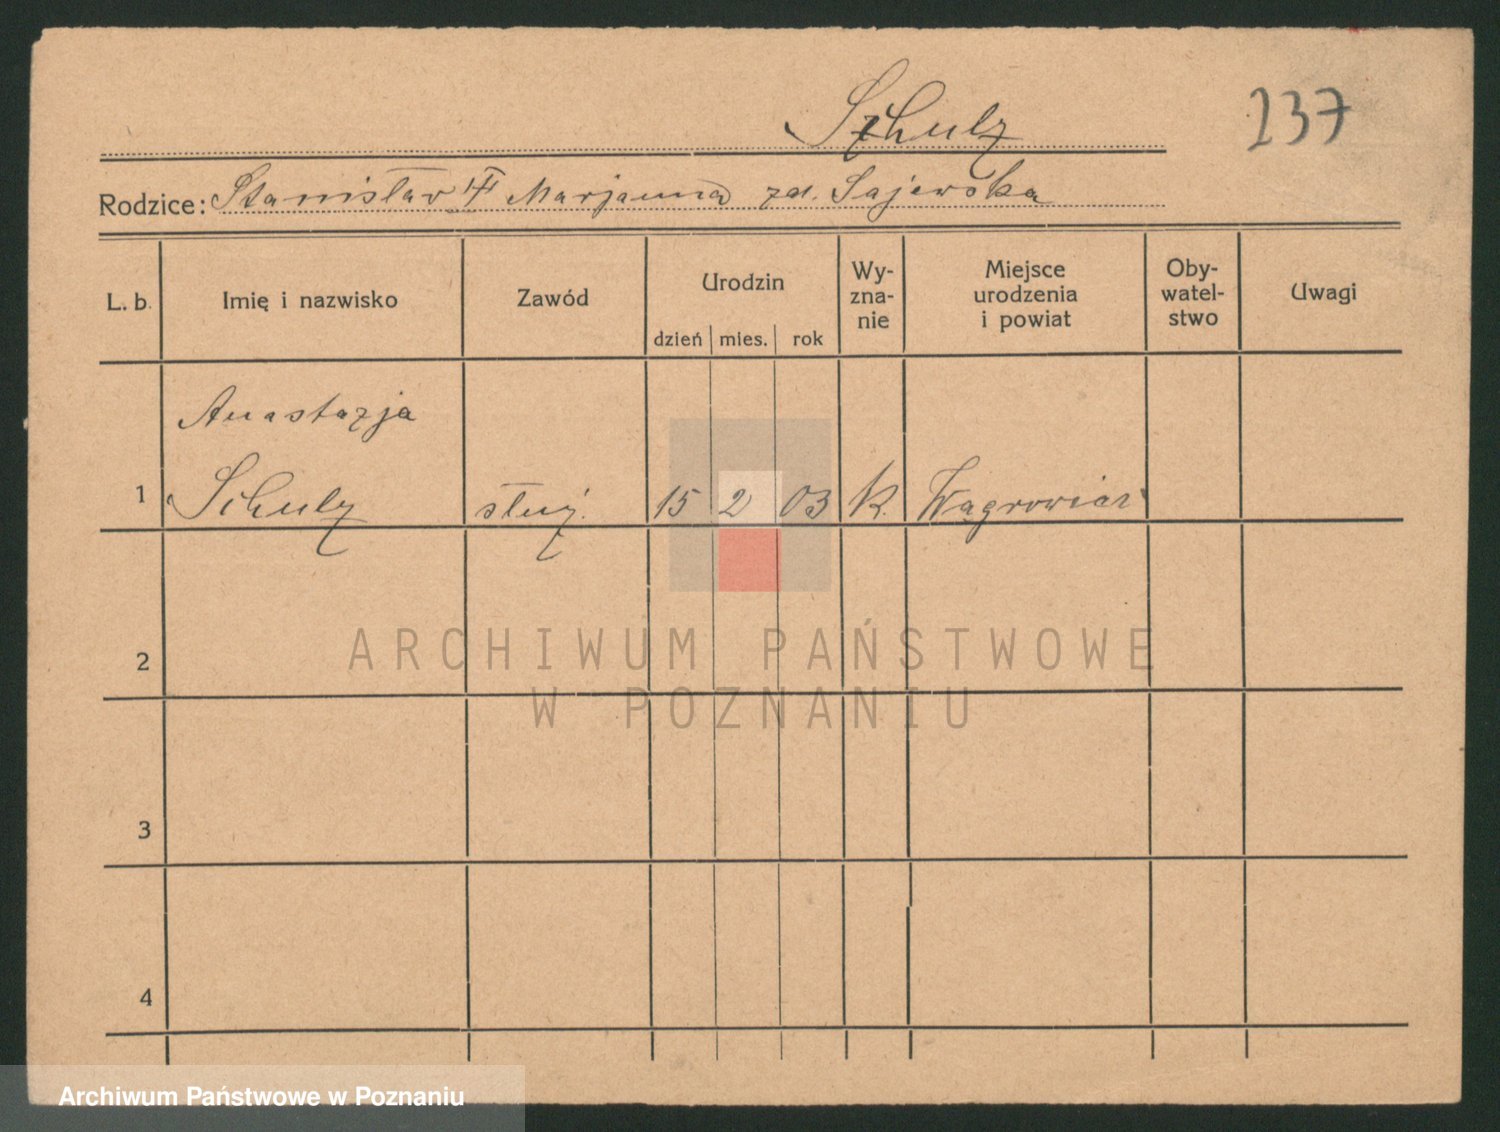 Szhulz
237
Rodzice: Stanisław Marjanna zd. Sajewska
L. b. Imię i nazwisko Zawód Urodzin dzień mies. rok Wy-zna-nie Miejsce urodzenia i powiat Oby-watel-stwo Uwagi
Anastazja
1 Schulz służ. 15 2 03 k. Wągrowiec
2
ARCHIWUM PAŃSTWOWE
W POZNANIU
3
4
Archiwum Państwowe w Poznaniu